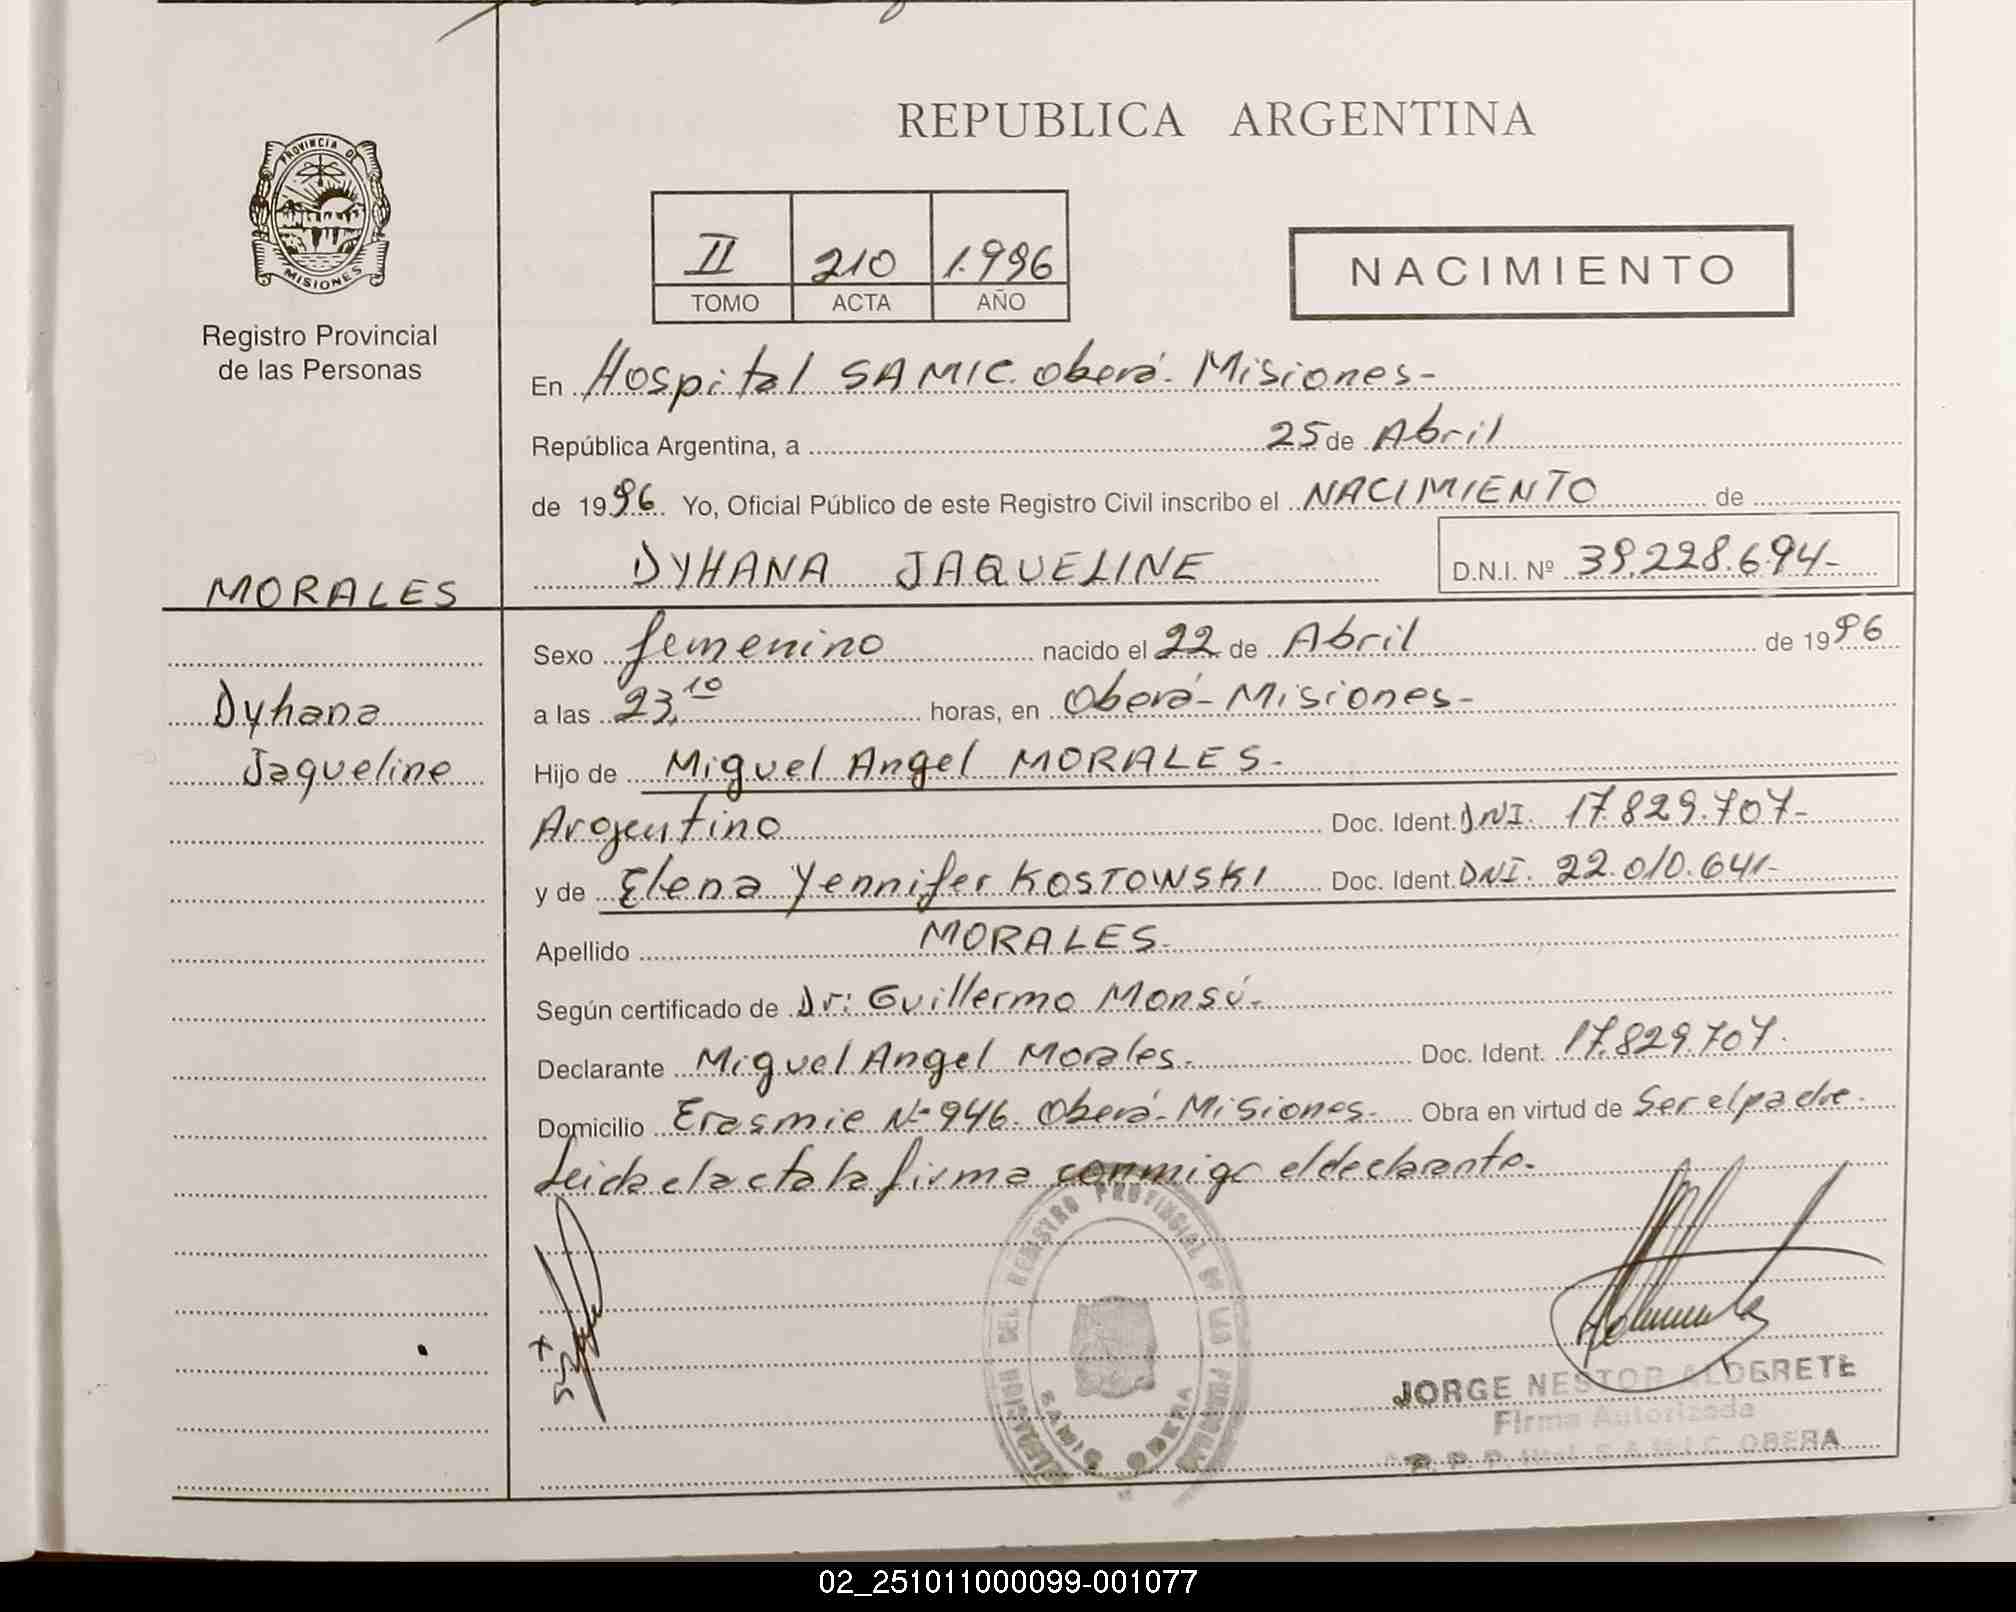 REPUBLICA ARGENTINA
PROVINCIA DE
MISIONES
Registro Provincial
de las Personas
II 210 1.996
TOMO ACTA AÑO
NACIMIENTO
En Hospital SAMIC. Oberá. Misiones-
República Argentina, a 25 de Abril
de 1996. Yo, Oficial Público de este Registro Civil inscribo el NACIMIENTO de
DYHANA JAQUELINE D.N.I. Nº 39.228.694-
MORALES
Dyhana
Jaqueline
Sexo femenino nacido el 22 de Abril de 1996
a las 23,10 horas, en Oberá- Misiones-
Hijo de Miguel Angel MORALES-
Argentino Doc. Ident. DNI. 17.829.707-
y de Elena Yennifer KOSTOWSKI Doc. Ident. DNI. 22.010.641-
Apellido MORALES-
Según certificado de Dr: Guillermo Monsú-
Declarante Miguel Angel Morales- Doc. Ident. 17.829.707.
Domicilio Erasmie Nº 946. Oberá- Misiones- Obra en virtud de Ser el padre-
Leida el acta la firma conmigo el declarante-
DEL REGISTRO PROVINCIAL DE LAS
SAMIC OBERA
JORGE NESTOR ALDERETE
Firma Autorizada
R. P. P. Htal. S.A.M.I.C. OBERA
02_251011000099-001077